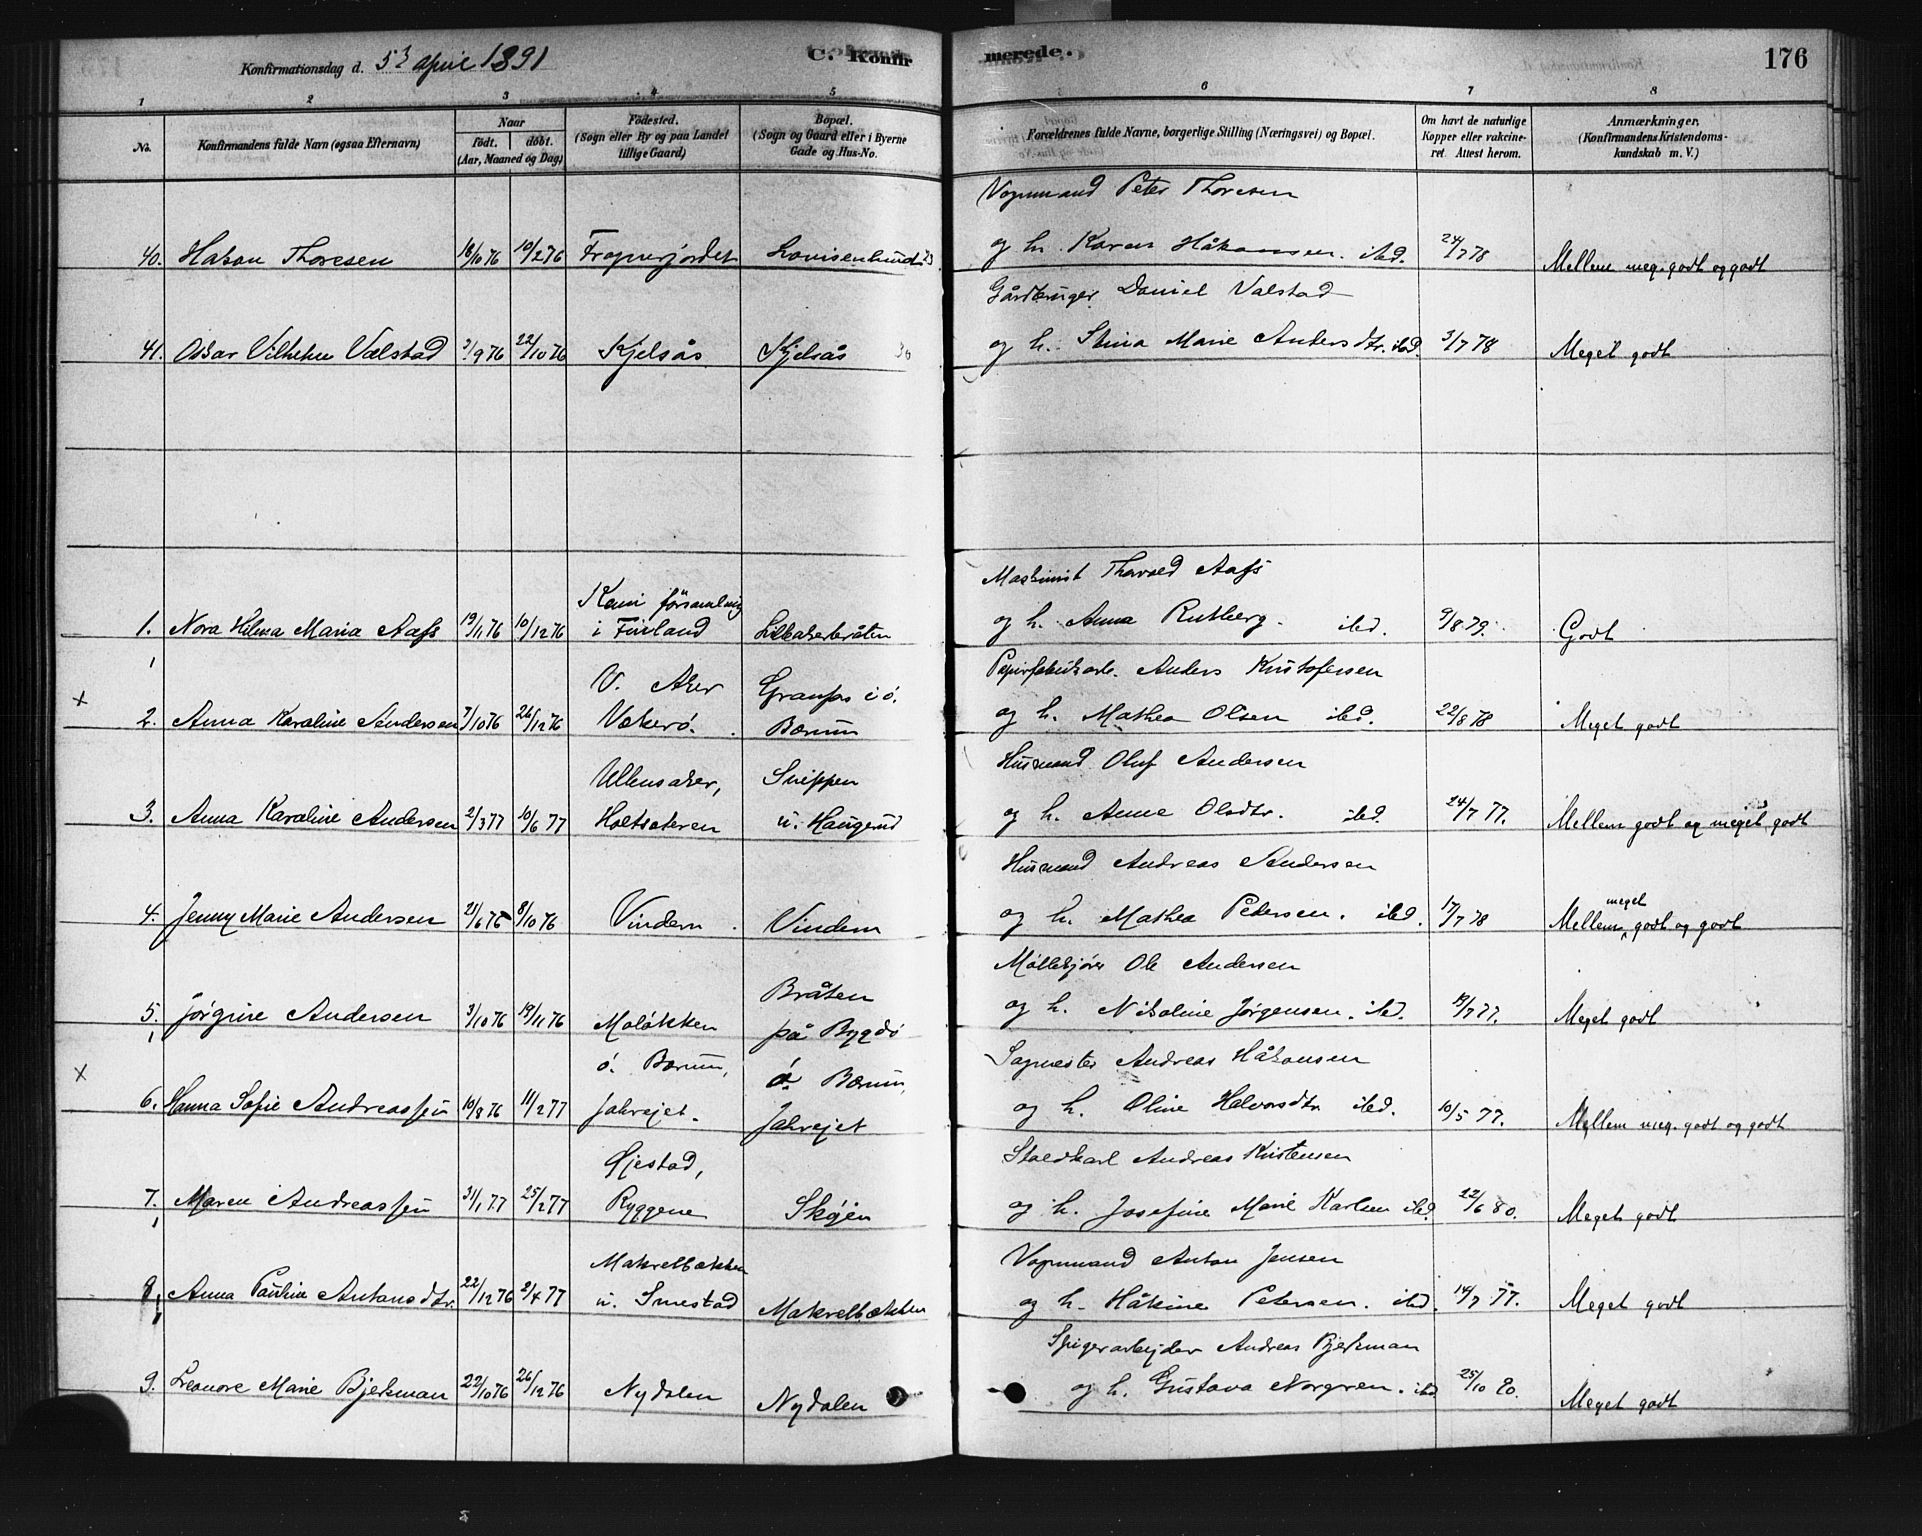 Konfirmationsdag d. 5 april 1891
C. Konfirmerede.
176
1 2 3 4 5 6 7 8
No.
Konfirmandens fulde Navn (ogsaa Efternavn)
Naar
født. døbt.
(Aar, Maaned og Dag)
Fødested.
(Sogn eller By og paa Landet
tillige Gaard)
Bopæl.
(Sogn og Gaard eller i Byerne
Gade og Hus-No.
Forældrenes fulde Navne, borgerlige Stilling (Næringsvei) og Bopæl.
Om havt de naturlige
Kopper eller vakcine-
ret. Attest herom.
Anmærkninger,
(Konfirmandens Kristendoms-
kundskab m. V.)
Vognmand Peter Thoresen
40. Hakon Thoresen 18/10 76 10/2 76 Frognerjordet Lovisenlund
og h. Karen Håkonsen. ibd. 24/7 78 Mellem meg. godt og godt
Gårdbruger Daniel Valstad
41. Oskar Vilhelm Valstad 3/9 76 22/10 76 Kjelsås Kjelsås 30
og h. Stina Marie Andersdtr. ibd. 3/7 78 Meget godt
Maskinist Thorvald Aafs
Kemi församling
1. Nora Hilma Maria Aafs 19/11 76 10/12 76 i Finland Lilleakerbråten
og h. Anna Rutberg. ibd. 9/8 79. Godt
Papirfabrikarb. Anders Kristofersen
x V. Aker Granfos i ö.
2. Anna Karoline Andersen 7/10 76 26/12 76 Vækerö. Bærum
og h. Mathea Olsen ibd. 22/8 78 Meget godt
Husmand Oluf Andersen
Ullensaker, Snippen
3. Anna Karoline Andersen 2/3 77 10/6 77 Holtsakeren u. Haugerud
og h. Anne Olsdtr. ibd. 24/7 77. Mellem godt og meget godt
Husmand Andreas Andersen
4. Jenny Marie Andersen 21/6 76 8/10 76 Vindern Vindern
og h. Mathea Pedersen. ibd. 17/7 78 Mellem meget godt og godt
Møllekjører Ole Andersen
Bråten
5. Jørgine Andersen 3/10 76 19/11 76 Moløkken på Bygdö
og h. Nikoline Jørgensen. ibd. 19/7 77. Meget godt
Sagmester Andreas Håkonsen
x ö. Bærum, ö. Bærum,
6. Hanna Sofie Andreassen 10/8 76 11/2 77 Jahrejet. Jahrejet
og h. Oline Halvorsdtr ibd. 10/5 77. Mellem meg. godt og godt
Staldkarl Andreas Kristensen
Øjestad,
7. Maren Andreassen 31/1 77 25/2 77 Ryggene Skøjen
og h. Josefine Marie Karlsen ibd. 22/6 80. Meget godt
Vognmand Anton Jensen
Makrelbækken
8. Anna Pauline Antonsdtr. 22/12 76 2/4 77 u. Smestad Makrelbækken
og h. Håkine Petersen. ibd. 14/7 77. Meget godt
Spigerarbejder Andreas Bjerkman
9. Leonore Marie Bjerkman 22/10 76 26/12 76 Nydalen Nydalen
og h. Gustava Norgren. ibd. 25/10 80. Meget godt